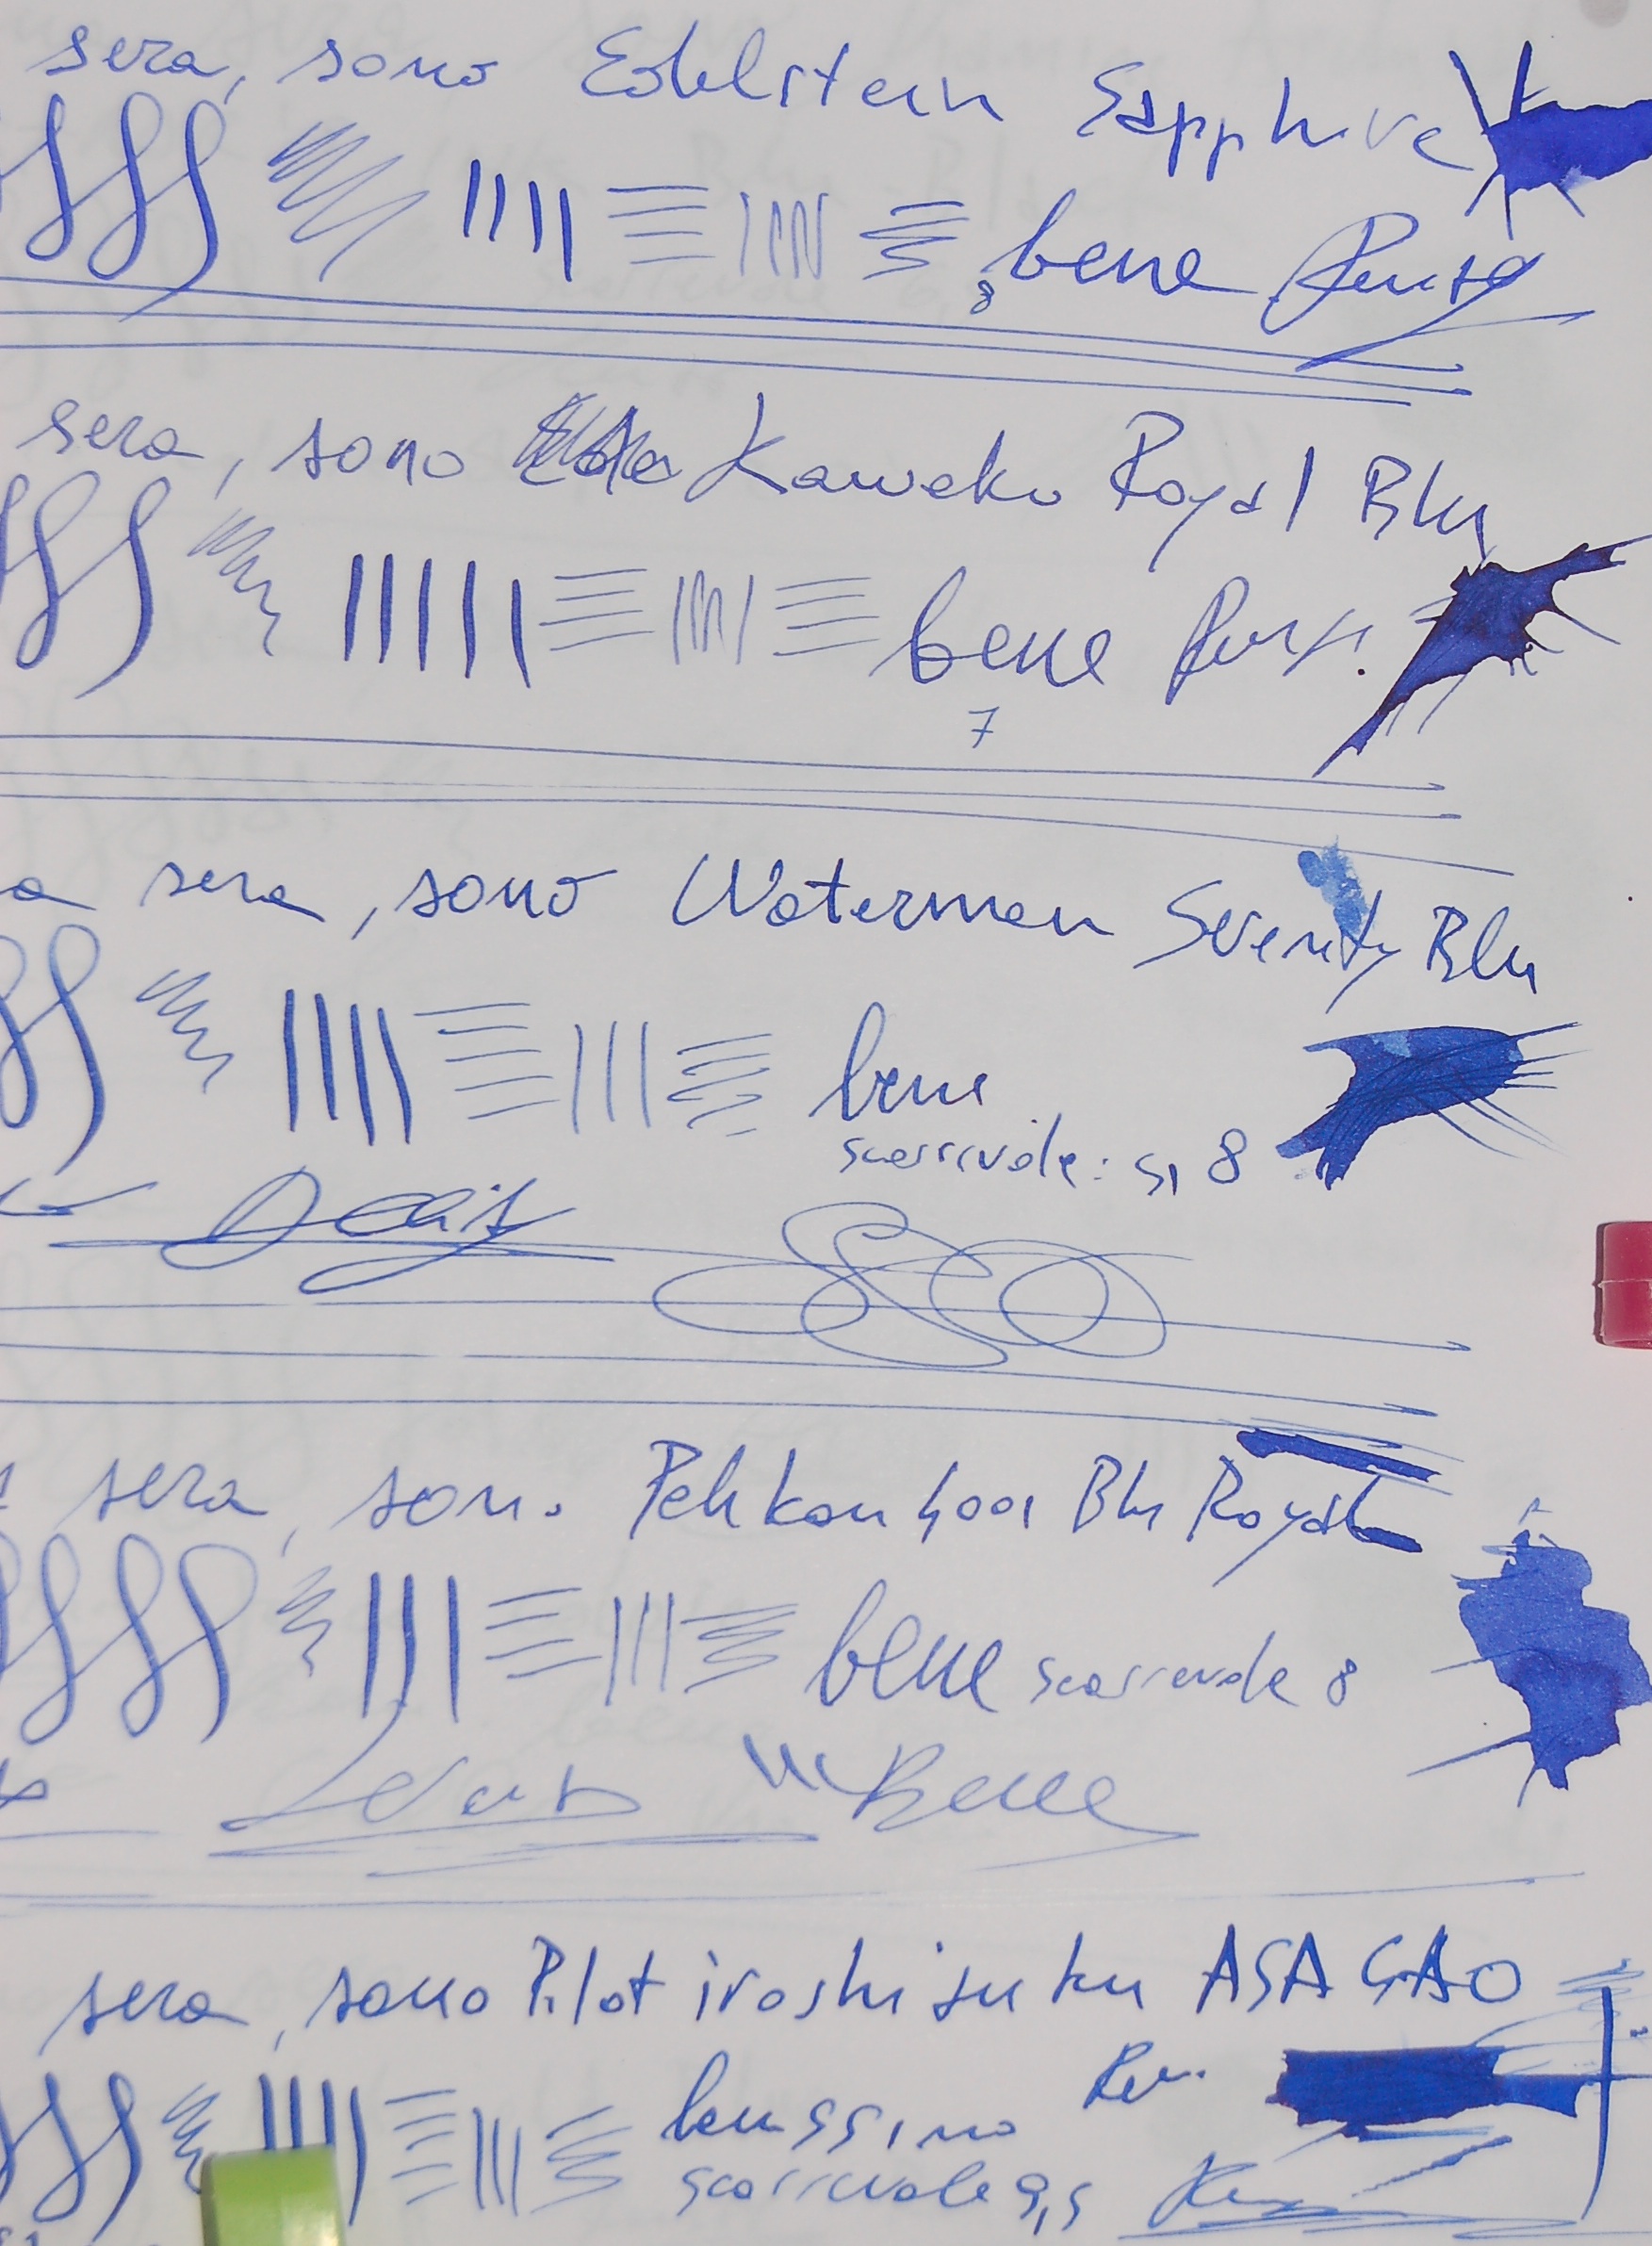 sera, sono Edelstein Sapphire
bene
8
sera, sono Kaweko Royal Blu
bene
7
a sera, sono Waterman Serenity Blu
bene
scorrivole: sì 8
sera, sono Pelikan 4001 Blu Royal
bene scorrevole 8
Bene
sera, sono Pilot iroshizuku ASA GAO
benissimo
scorrevole 9,5